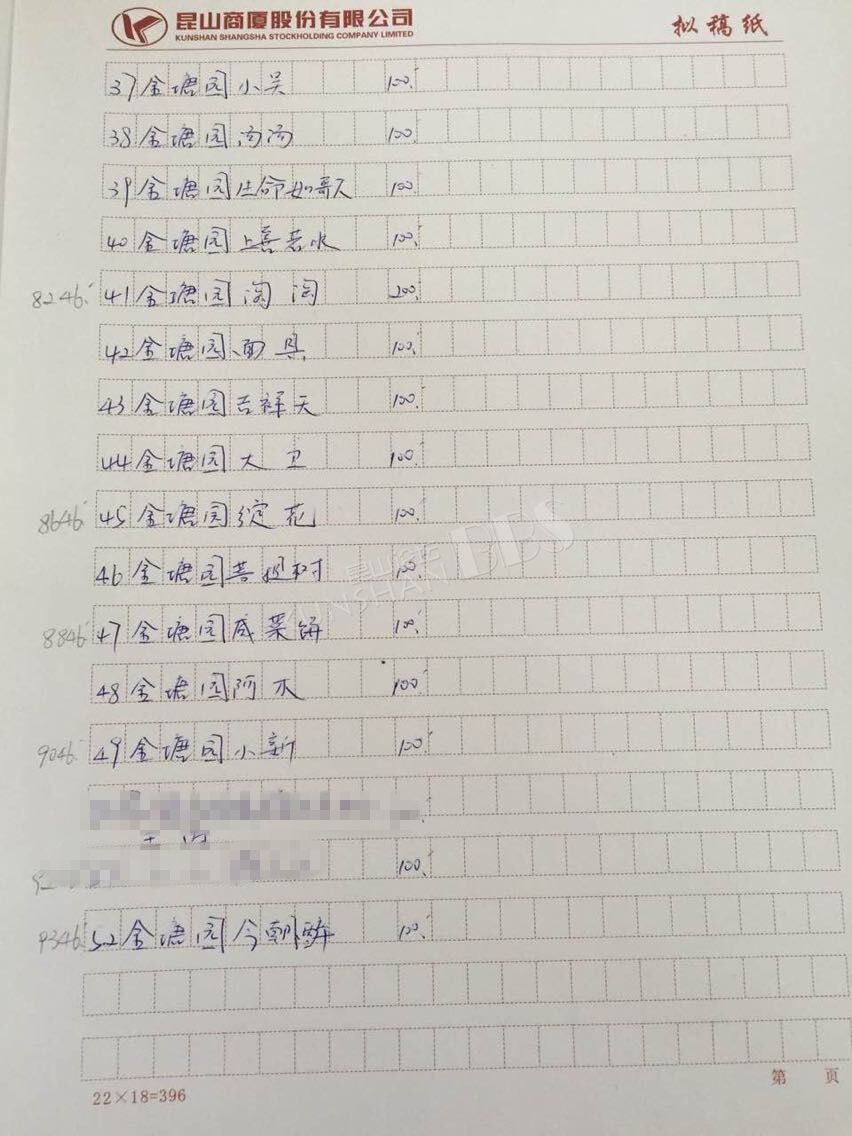 昆山商厦股份有限公司
KUNSHAN SHANGSHA STOCKHOLDING COMPANY LIMITED
拟稿纸
37 金塘园小吴 100.
38 金塘园汤汤 100.
39 金塘园生命如歌 100.
40 金塘园上善若水 100.
8246. 41 金塘园淘淘 200.
42 金塘园面具 100.
43 金塘园吉祥天 100.
44 金塘园大卫 100.
8646. 45 金塘园绽花 100.
46 金塘园菩提树 100
8846. 47 金塘园咸菜饼 100.
48 金塘园阿木 100.
9046. 49 金塘园小新 100.
100.
9346. 52 金塘园今朝醉 100.
昆山论坛
KUNSHAN BBS
第 页
22×18=396